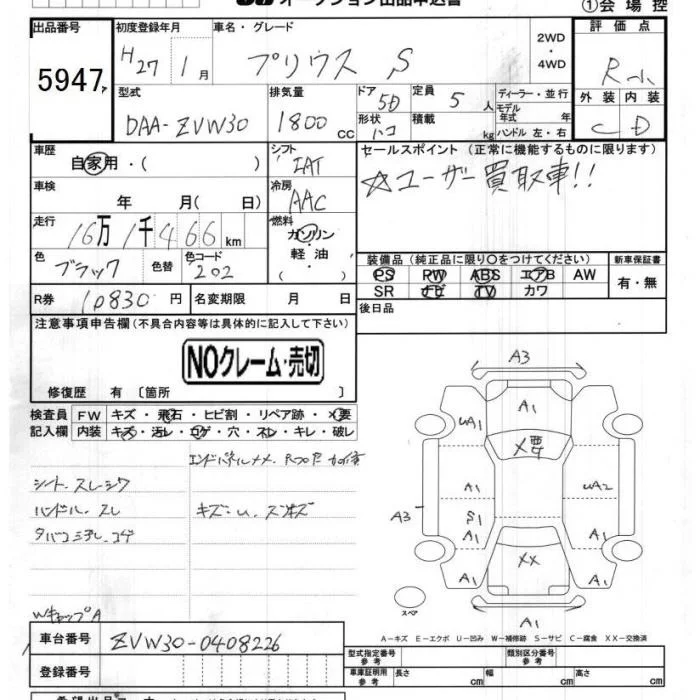 オークション出品申込書
①会場控
出品番号 初度登録年月 車名・グレード 2WD・4WD 評価点
5947 H27年1月 プリウス S R
外装 内装
C D
型式 排気量 ドア 定員 ディーラー・並行
DAA-ZVW30 1800cc 5D 5人 モデル年式 年
形状 積載 kg ハンドル 左・右
ハコ
車歴 シフト セールスポイント(正常に機能するものに限ります)
自家用・( ) IAT ☆ユーザー買取車!!
車検 年 月( 日) 冷房 AAC
走行 16万1千466km 燃料 ガソリン・軽油・( )
色 ブラック 色替 色コード 202
装備品(純正品に限り○をつけてください) 新車保証書
PS PW ABS エアB AW 有・無
SR ナビ TV カワ
R券 10830円 名変期限 月 日 後日品
注意事項申告欄(不具合内容等は具体的に記入して下さい)
NOクレーム・売切
修復歴 有〔箇所 〕
検査員記入欄 FW キズ・飛石・ヒビ割・リペア跡・×要
内装 キズ・汚レ・コゲ・穴・スレ・キレ・破レ
シート スレ・シワ
ハンドル スレ キズ・U
Wキャップ A
A3
A1
UA1 ×要
A1 UA2
A3 S1
A1 A1
A1 ×× A1
スペア A1
A-キズ E-エクボ U-凹み W-補修跡 S-サビ C-腐食 XX-交換済
車台番号 ZVW30-0408226
型式指定番号参考 類別区分番号参考
登録番号 車庫証明用参考 長さ cm 幅 cm 高さ cm